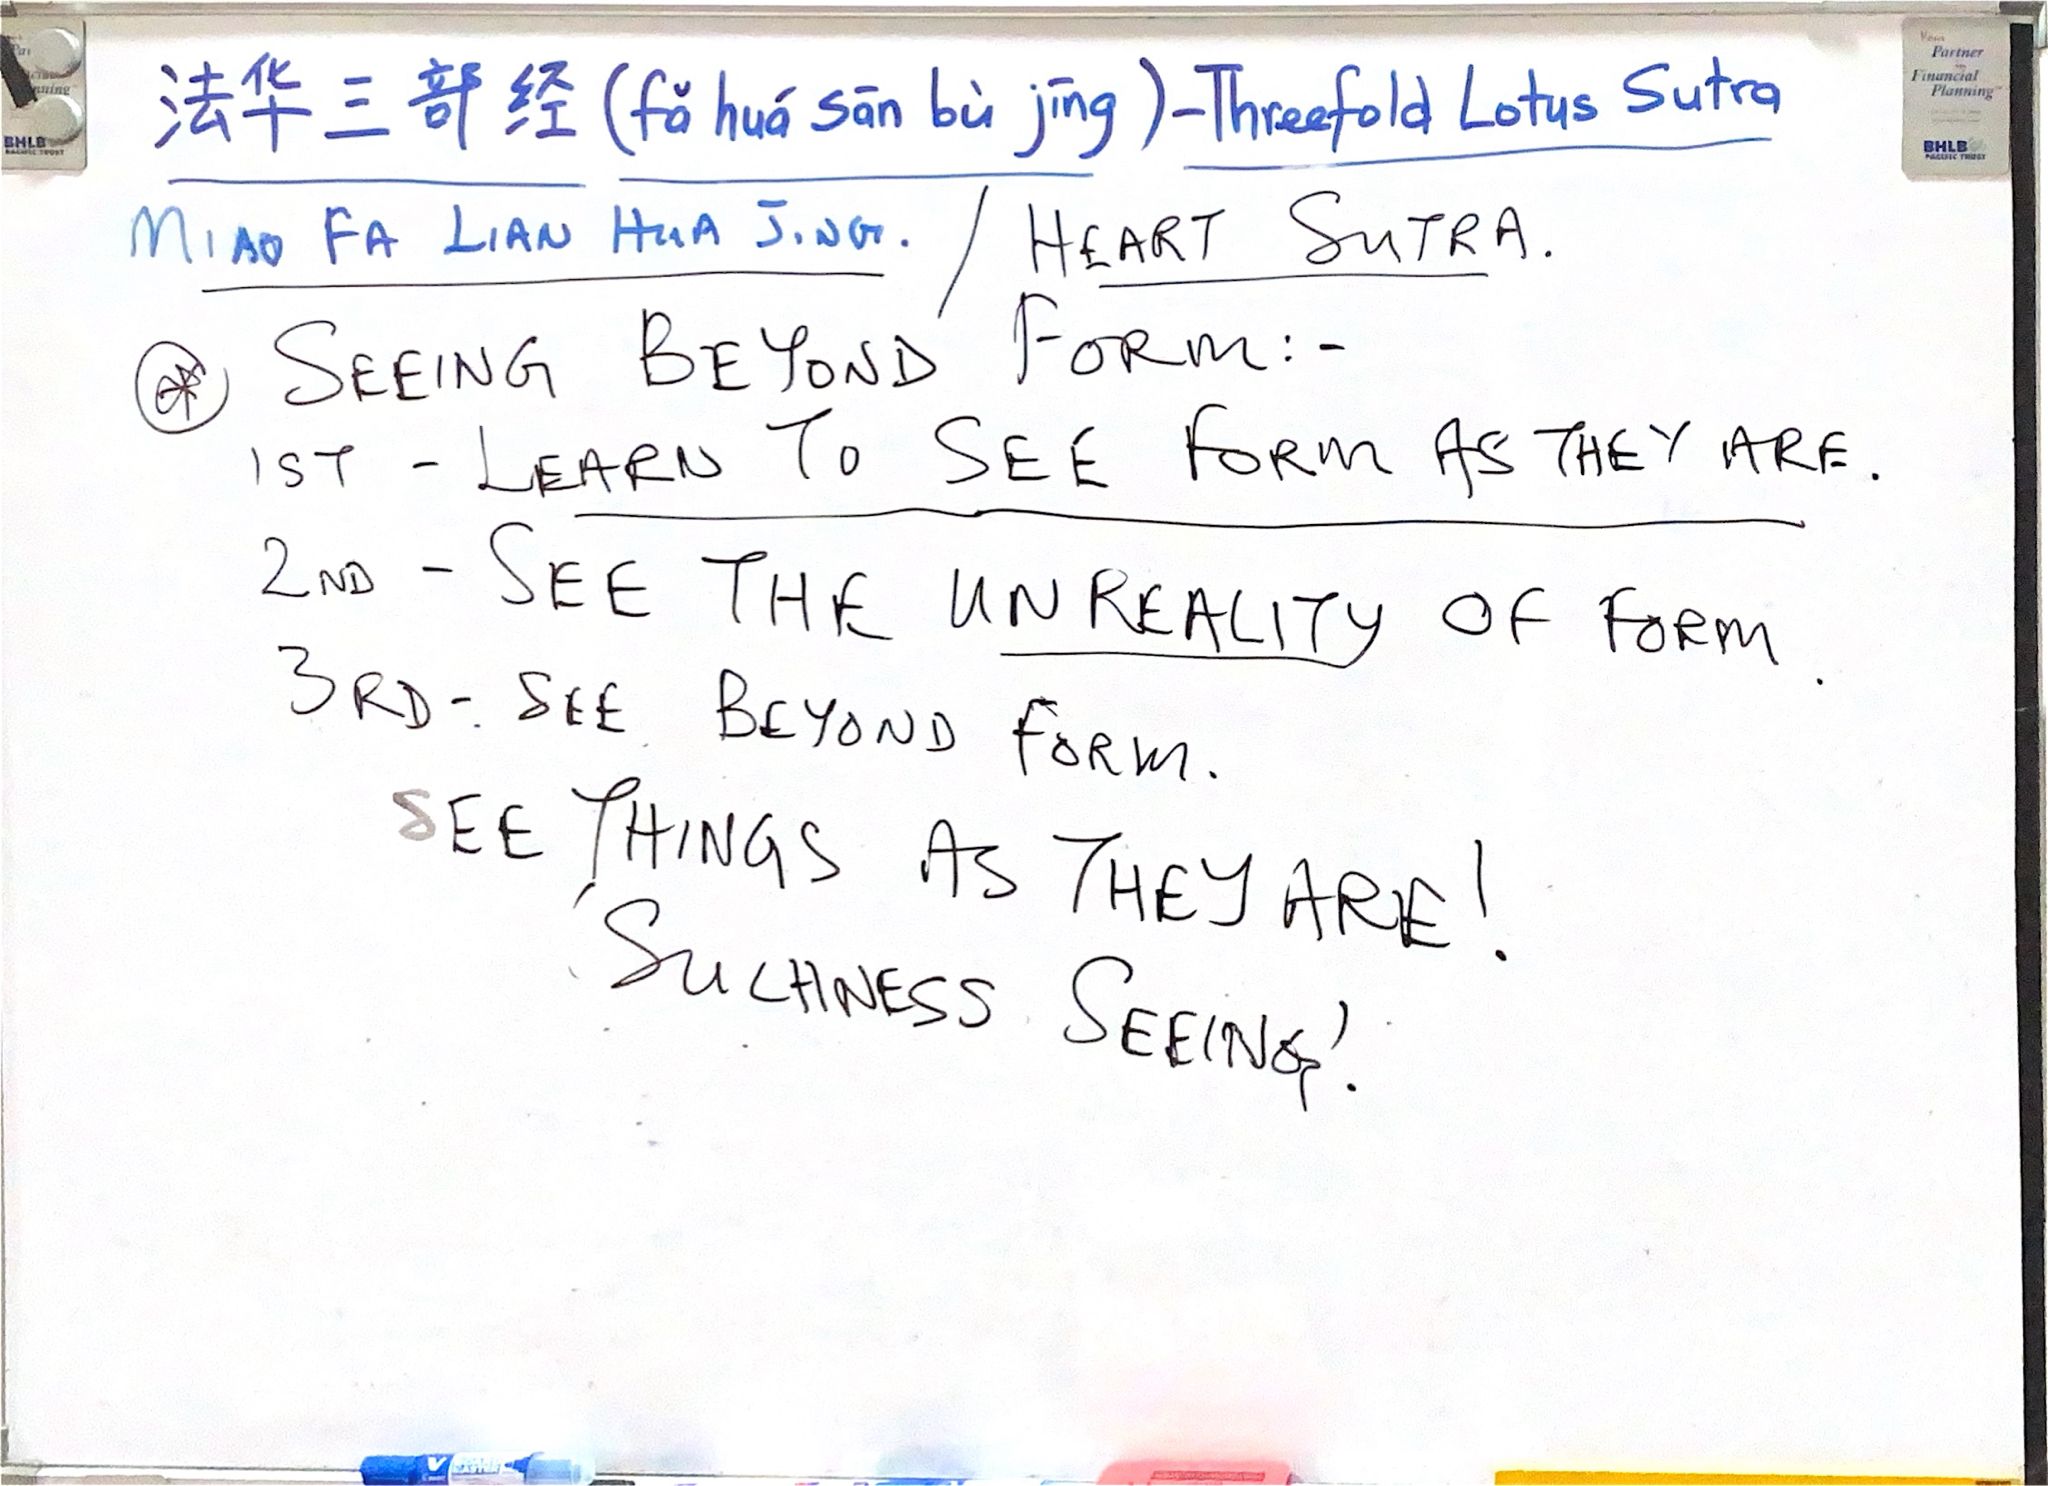 法华三部经 (fǎ huá sān bù jīng) - Threefold Lotus Sutra
MIAO FA LIAN HUA JING. / HEART SUTRA.
* SEEING BEYOND FORM:-
1ST - LEARN TO SEE FORM AS THEY ARE.
2ND - SEE THE UNREALITY OF FORM.
3RD - SEE BEYOND FORM.
SEE THINGS AS THEY ARE!
SUCHNESS SEEING!
Your
Partner
in
Financial
Planning
BHLB
PACIFIC TRUST
BHLB
PACIFIC TRUST